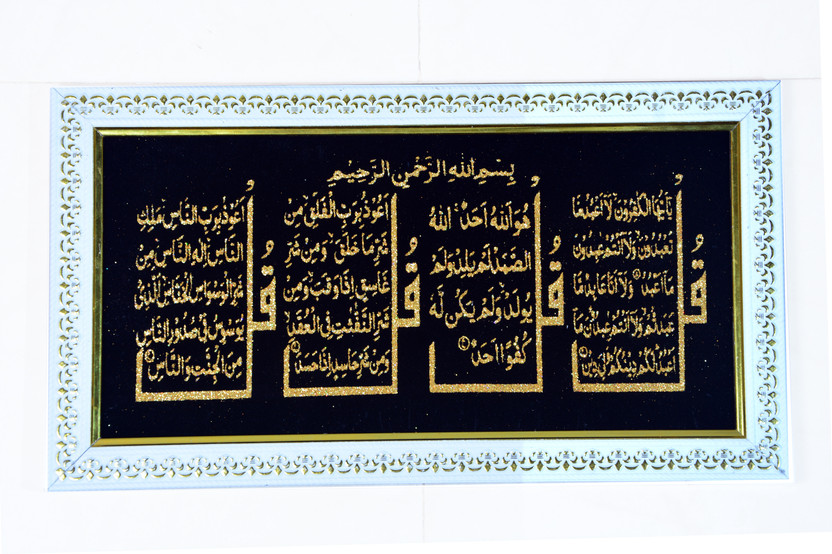 بِسْمِ اللهِ الرَّحْمٰنِ الرَّحِيْمِ
قُلْ
يٰٓاَيُّهَا الْكٰفِرُوْنَ لَآ اَعْبُدُ مَا
تَعْبُدُوْنَ وَلَآ اَنْتُمْ عٰبِدُوْنَ
مَآ اَعْبُدُ وَلَآ اَنَا عَابِدٌ مَّا
عَبَدْتُّمْ وَلَآ اَنْتُمْ عٰبِدُوْنَ مَآ
اَعْبُدُ لَكُمْ دِيْنُكُمْ وَلِيَ دِيْنِ
قُلْ
هُوَ اللهُ اَحَدٌ اَللهُ
الصَّمَدُ لَمْ يَلِدْ وَلَمْ
يُوْلَدْ وَلَمْ يَكُنْ لَّهٗ
كُفُوًا اَحَدٌ
قُلْ
اَعُوْذُ بِرَبِّ الْفَلَقِ مِنْ
شَرِّ مَا خَلَقَ وَمِنْ شَرِّ
غَاسِقٍ اِذَا وَقَبَ وَمِنْ
شَرِّ النَّفّٰثٰتِ فِي الْعُقَدِ
وَمِنْ شَرِّ حَاسِدٍ اِذَا حَسَدَ
قُلْ
اَعُوْذُ بِرَبِّ النَّاسِ مَلِكِ
النَّاسِ اِلٰهِ النَّاسِ مِنْ
شَرِّ الْوَسْوَاسِ الْخَنَّاسِ الَّذِيْ
يُوَسْوِسُ فِيْ صُدُوْرِ النَّاسِ
مِنَ الْجِنَّةِ وَالنَّاسِ